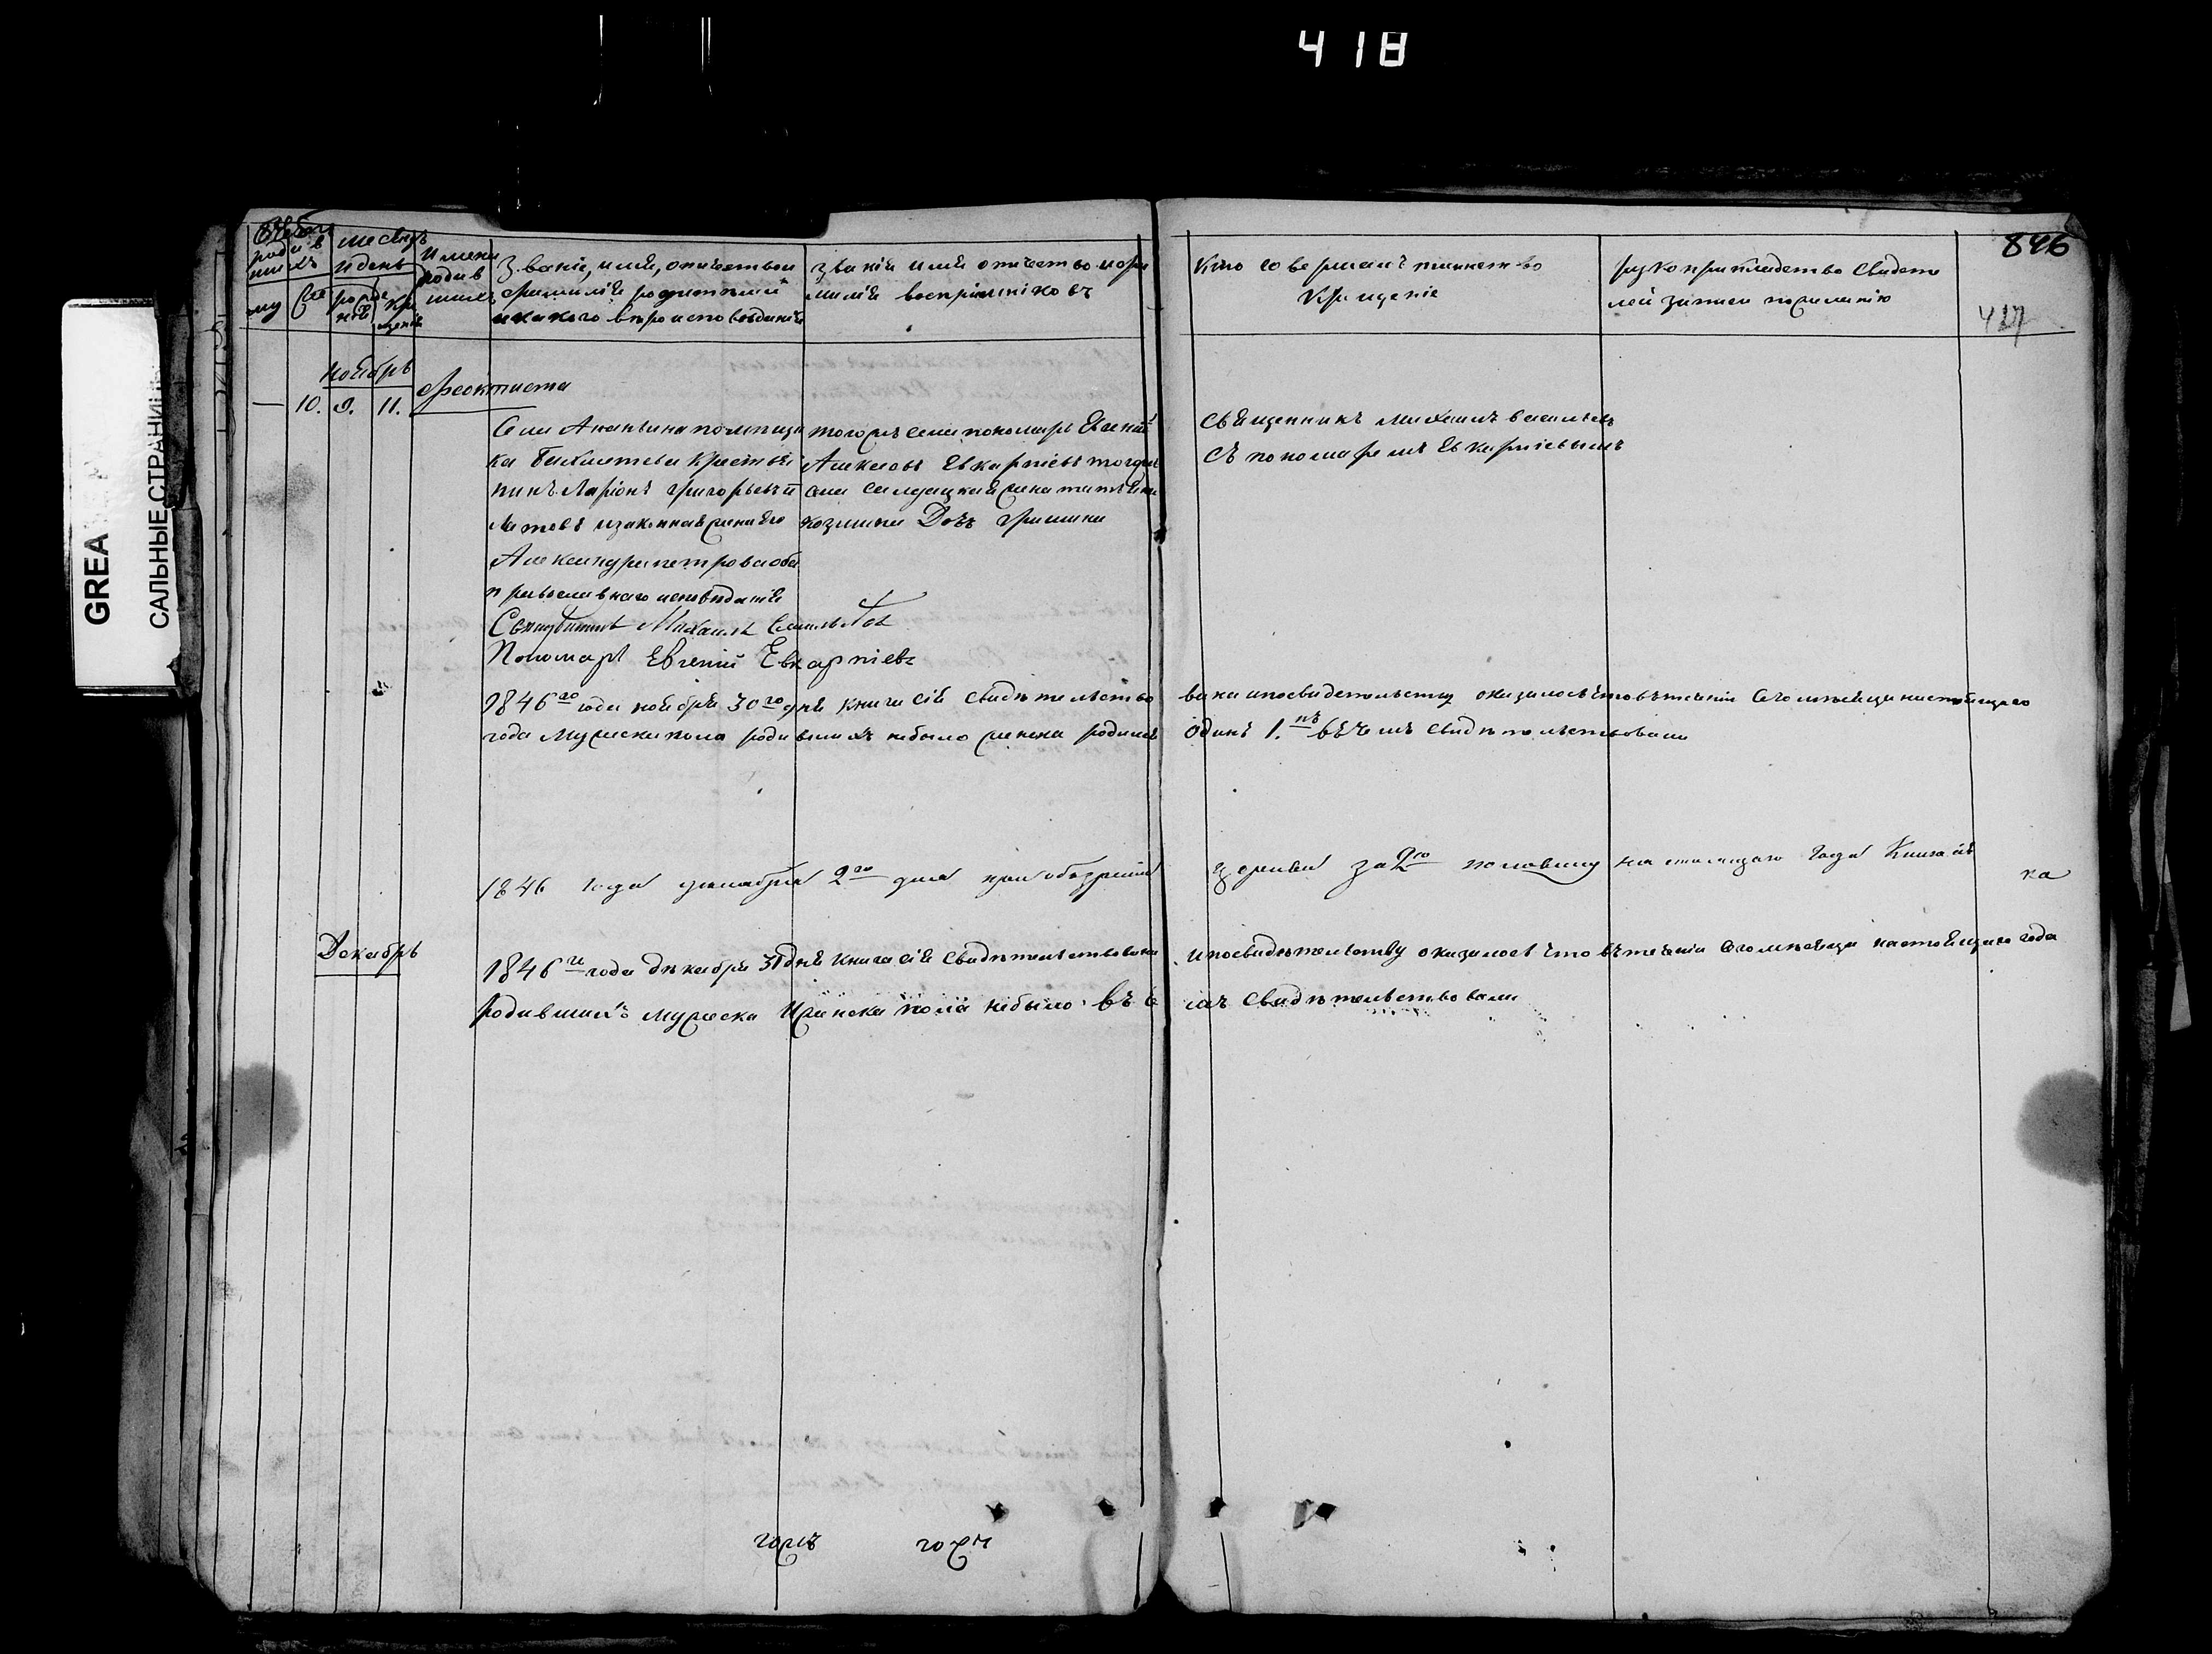 418
GREA
САЛЬНЫЕ СТРАНИ
846
417
родив
шихъ
му
же
месяцъ
и день
рожде
нія
кре
щенія
Имена
родив
шихъ
Званіе, имя, отчество и
фамилія родителей
и какого вероисповѣданія
званіе имя отчество и фа
милія воспріемниковъ
Кто совершалъ таинство
Крещенія
рукоприкладство свидете
лей записи по желанію
ноября
10.
9.
11.
Феоктиста
Села Ананьина помещи
ка Бахметева Крестья
нинъ Ларіонъ Григорьевъ
и законная жена его
Александра петрова оба
православнаго исповѣданія
того же села пономарь Евгеній
Алексеевъ Евкарпіевъ того же
села салдацкая жена татьяна
козмина
Священникъ Михаилъ васильевъ
Съ пономаремъ Евкарпіевымъ
Священникъ Михаилъ Васильевъ
Пономарь Евгеній Евкарпіевъ
1846го года ноября 30го дня книга сія свидѣтельство
вана и по свидетельству оказалось что въ теченіи сего месяца настоящаго
года Мужеска пола родившихъ небыло женска родилсь
одинъ 1. въ чемъ свидѣтельствовали
1846 года декабря 2го дня при обозреніи
церкви за 2ю половину настоящаго года Книга
ка
Декабрь
1846го года дѣкабря 31 дня книга сія свидѣтельствована
и по свидѣтельству оказалось что въ теченіи сего месяца настоящаго года
родившихъ мужеска и женска пола небыло. въ че
мъ свидѣтельствовали